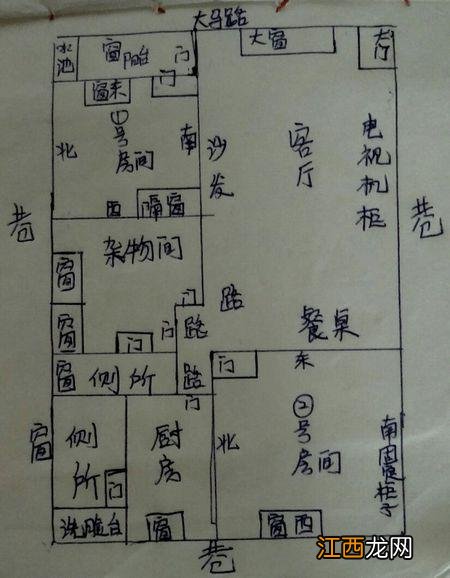 大马路
水池
窗
阳台
门
大窗
大门
门
窗东
①号房间
北
南
沙发
客厅
电视机柜
西
隔窗
巷
巷
杂物间
窗
门
路
窗
门
路
餐桌
窗
侧所
路
门
东
窗
侧所
厨房
门
北
②号房间
南
固定柜子
门
洗脸台
窗
窗西
巷
江西龙网